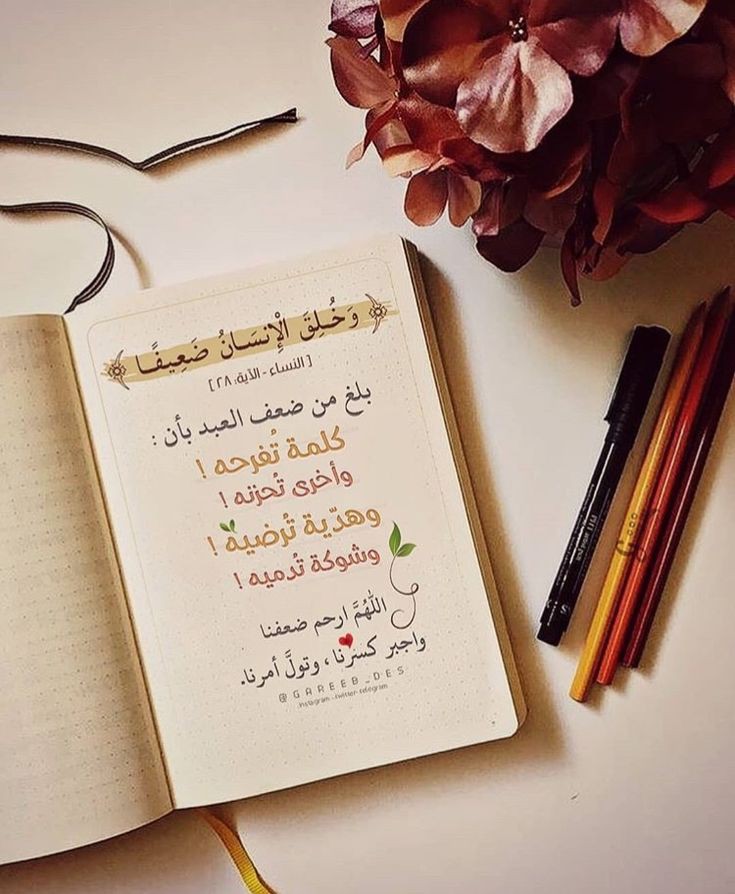 وَخُلِقَ الْإِنسَانُ ضَعِيفًا
[ النساء - الآية: ٢٨ ]
بلغ من ضعف العبد بأن :
كلمة تُفرحه !
وأخرى تُحزنه !
وهديّة تُرضيه !
وشوكة تُدميه !
اللَّهُمَّ ارحم ضعفنا
واجبر كسرنا ، وتولَّ أمرنا.
@GAREEB_DES
instagram - twitter - telegram